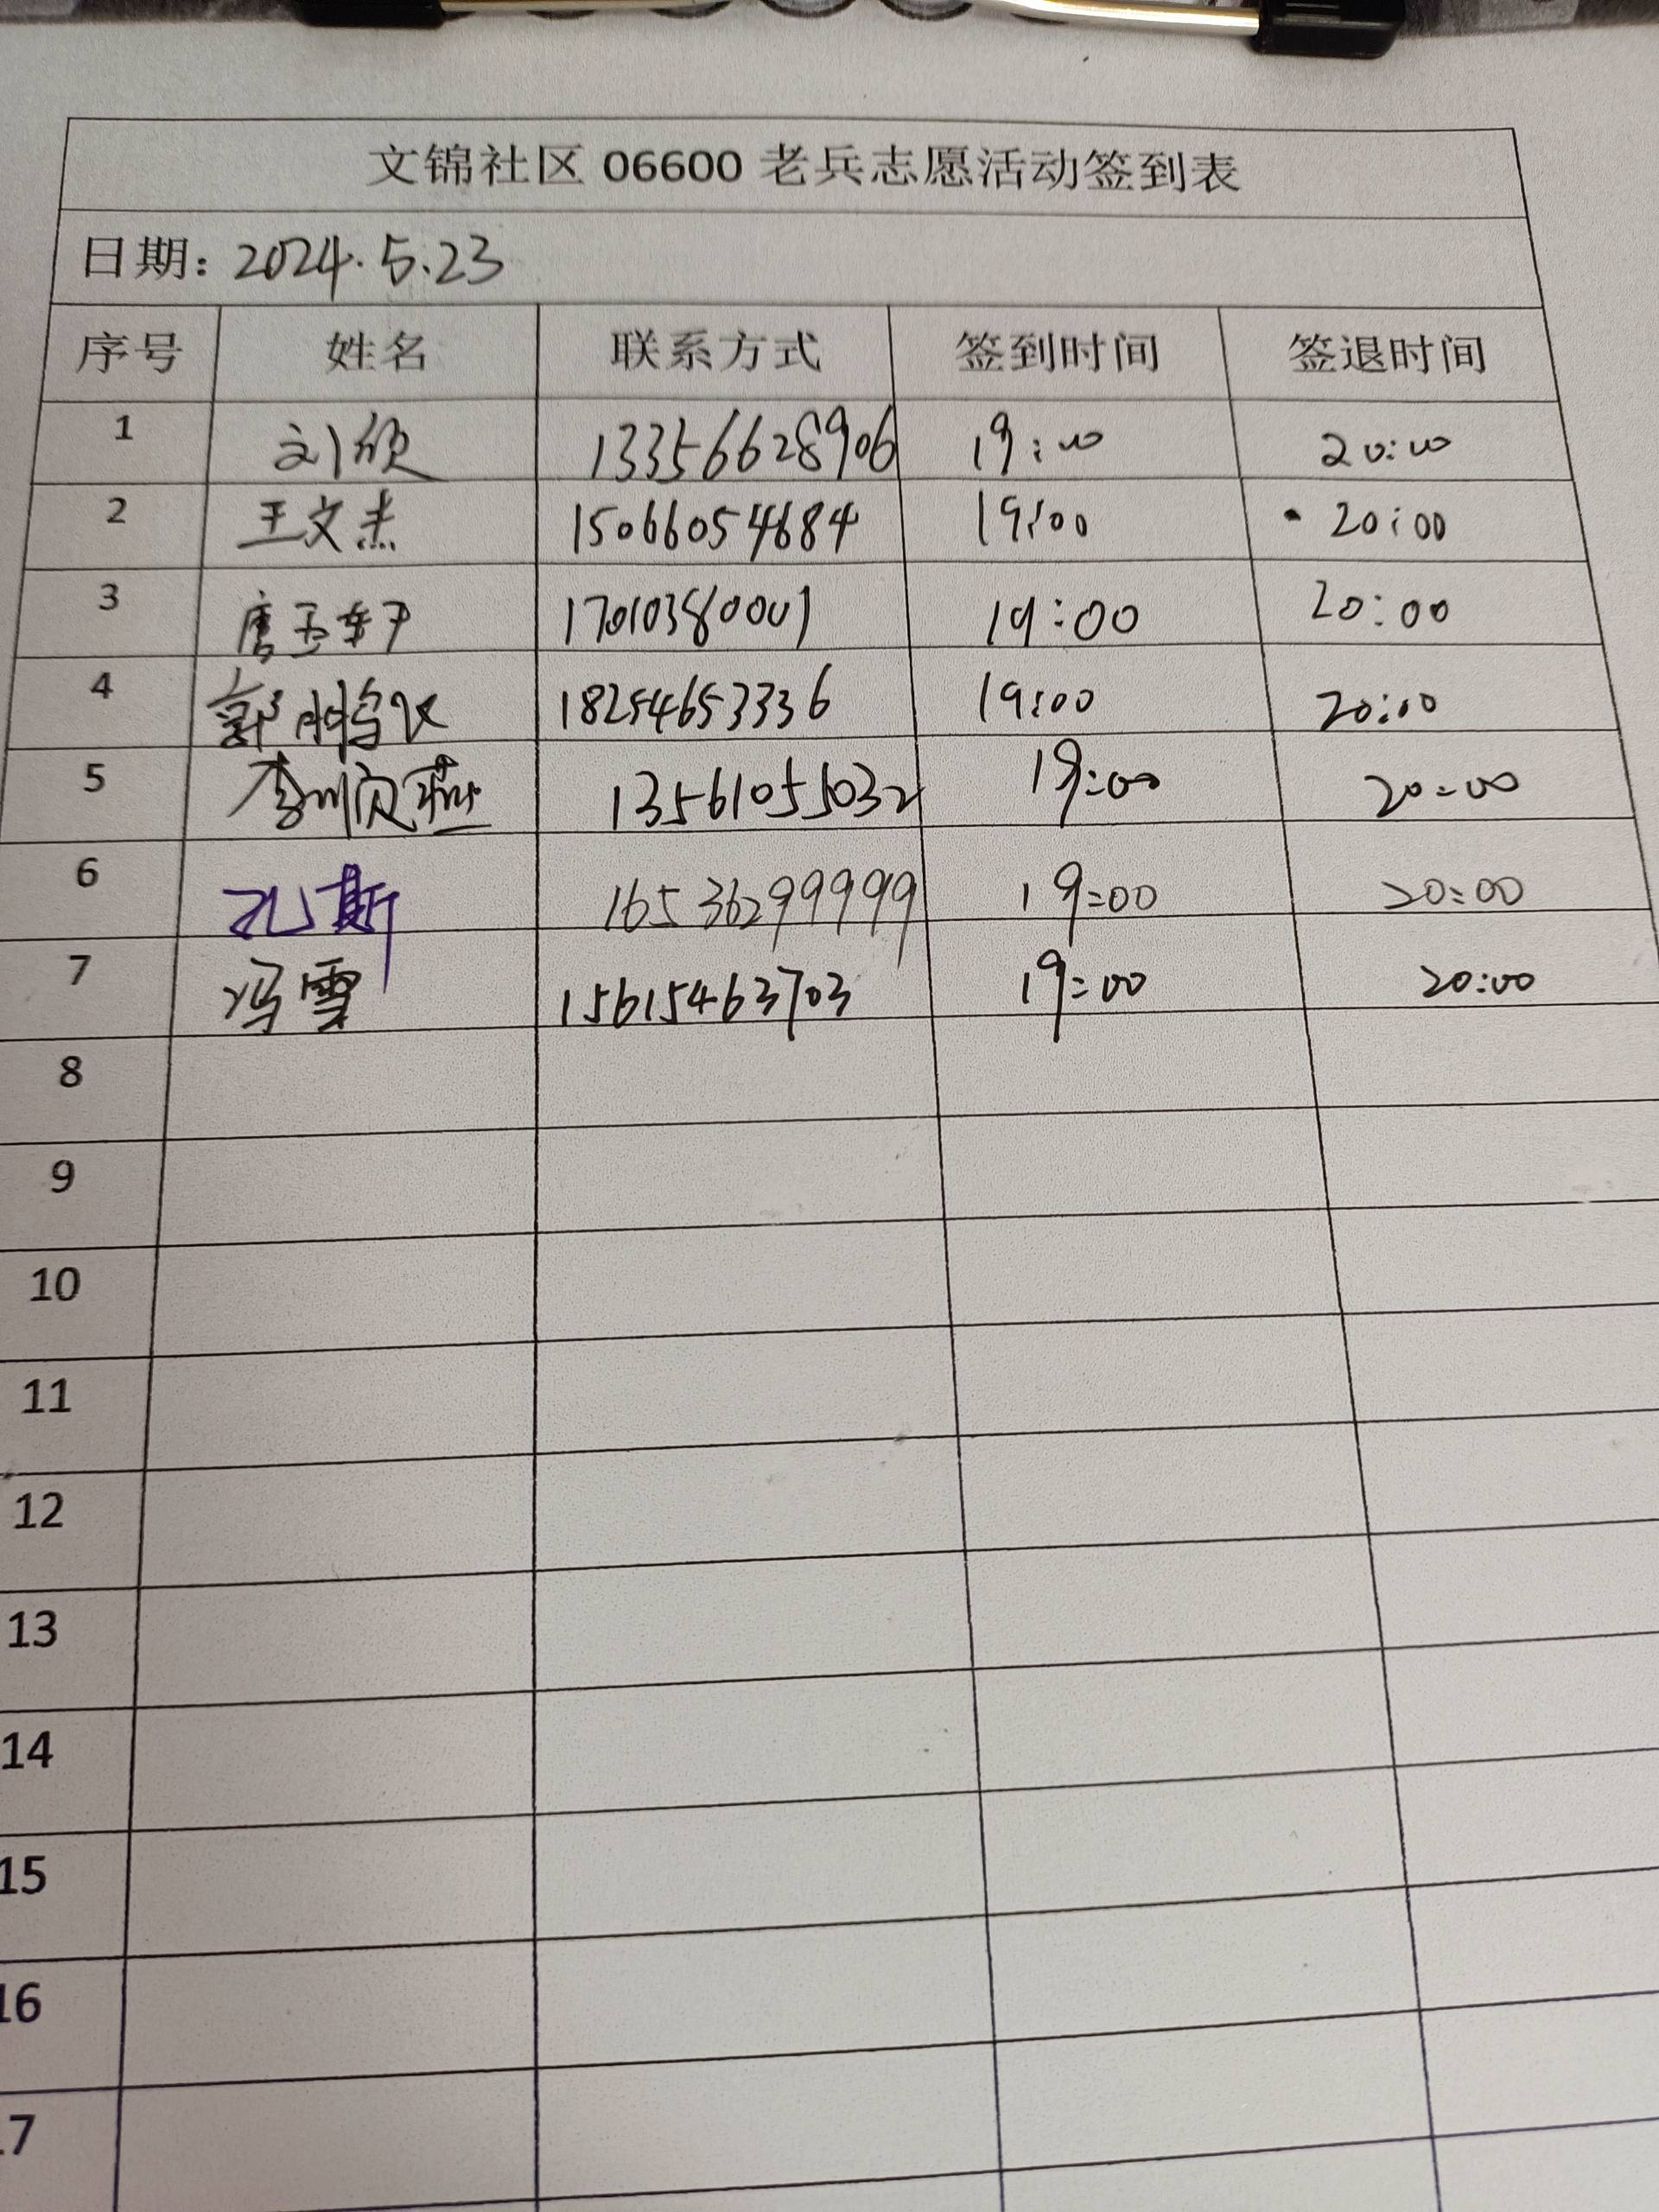 文锦社区 06600 老兵志愿活动签到表
日期: 2024.5.23
序号 姓名 联系方式 签到时间 签退时间
1 刘欣 13356628906 19:00 20:00
2 王文杰 15066054684 19:00 20:00
3 唐玉轩 17010380001 19:00 20:00
4 郭 18254653336 19:00 20:00
5 李顺燕 13561055032 19:00 20:00
6 孔斯 16536299999 19:00 20:00
7 冯雪 15615463703 19:00 20:00
8
9
10
11
12
13
14
15
16
17